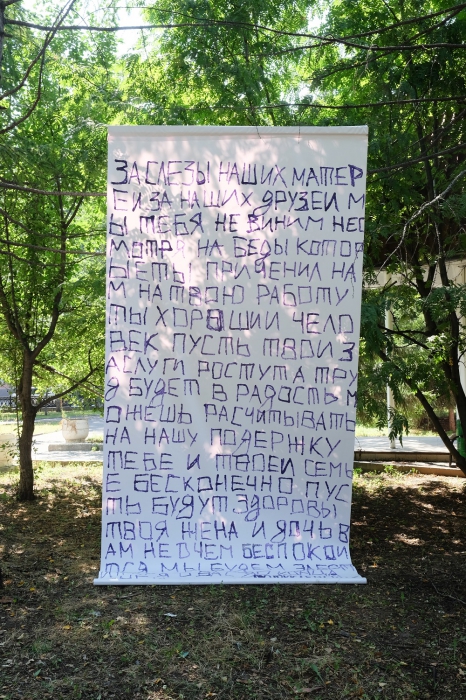 ЗА СЛЕЗЫ НАШИХ МАТЕР
ЕИ ЗА НАШИХ ДРУЗЕИ М
Ы ТЕБЯ НЕ ВИНИМ НЕС
МОТРЯ НА БЕДЫ КОТОР
ЫЕ ТЫ ПРИЧЕНИЛ НА
М НА ТВОЮ РАБОТУ
ТЫ ХОРОШИИ ЧЕЛО
ВЕК ПУСТЬ ТВОИ З
АСЛУГИ РОСТУТ А ТРУ
Д БУДЕТ В РАДОСТЬ М
ОЖЕШЬ РАСЧИТЫВАТЬ
НА НАШУ ПОДЕРЖКУ
ТЕБЕ И ТВОЕИ СЕМЬ
Е БЕСКОНЕЧНО ПУС
ТЬ БУДУТ ЗДОРОВЫ
ТВОЯ ЖЕНА И ДОЧЬ В
АМ НЕ О ЧЕМ БЕСПОКОИ
ТСЯ МЫ БУДЕМ ЗДЕС